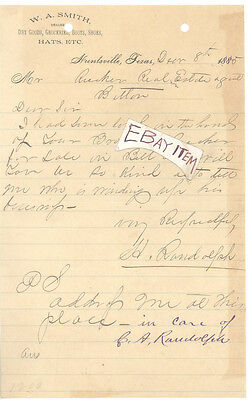 W. A. SMITH,
DEALER IN
DRY GOODS, GROCERIES, BOOTS, SHOES,
HATS, ETC.
Huntsville, Texas, Decr 8th 1885
Mr Rucker Real Estate agent
Belton
Dear Sir
I had some land in the hands
of Your
for Sale in Bell will
You be so Kind as to tell
me who is winding up his
business
very Respectfuly
Randolph
EBAY ITEM
PS
address me at this
place — in care of
C. A. Randolph